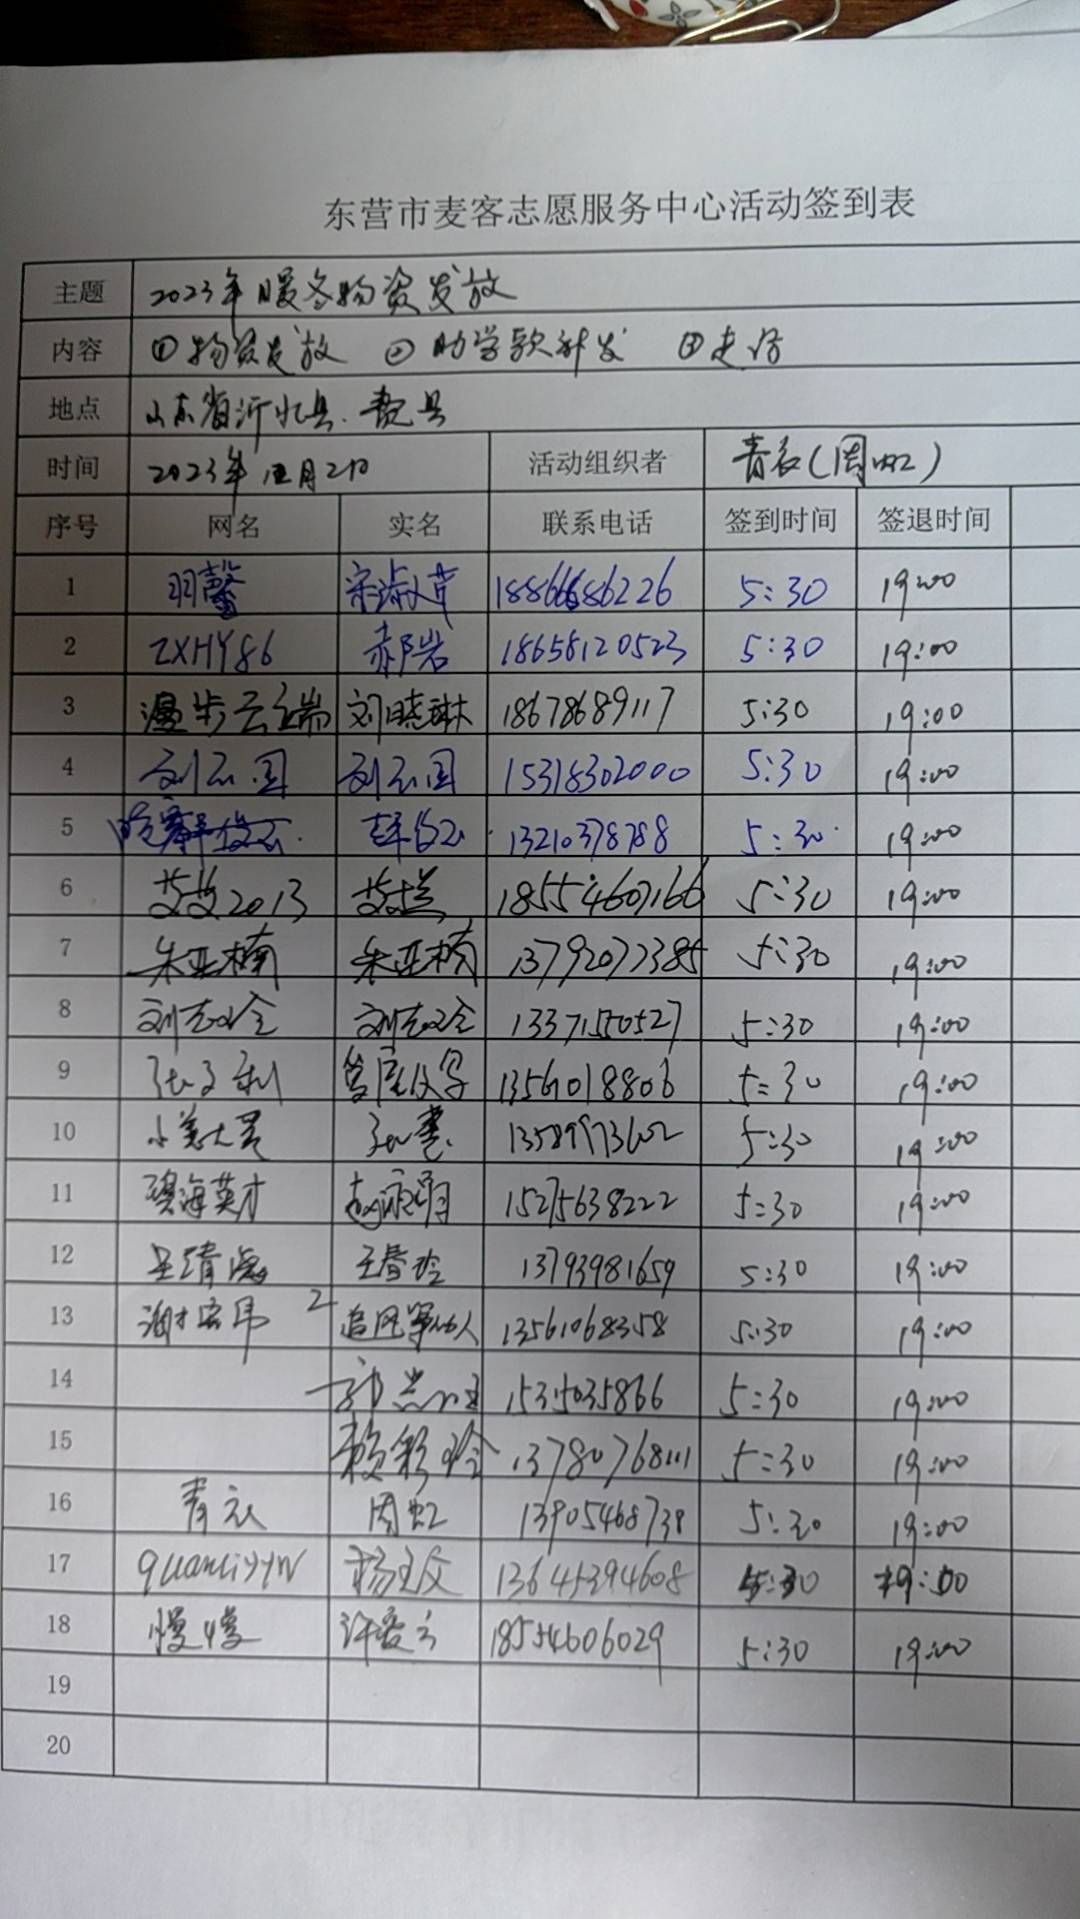 东营市麦客志愿服务中心活动签到表
主题 2023年暖冬物资发放
内容 ①物资发放 ②助学款补发 ③走访
地点 山东省沂水县、费县
时间 2023年12月2日 活动组织者 青衣(周虹)
序号 网名 实名 联系电话 签到时间 签退时间
1 羽馨 宋淑芹 18866686226 5:30 19:00
2 ZXHY86 郝岩 18658120523 5:30 19:00
3 漫步云端 刘晓琳 18678689117 5:30 19:00
4 刘玉国 刘玉国 15318302000 5:30 19:00
5 13210378788 5:30 19:00
6 艾艾2013 18554607166 5:30 19:00
7 朱亚楠 朱亚楠 13792072385 5:30 19:00
8 刘志全 刘志全 13371550527 5:30 19:00
9 13561018806 5:30 19:00
10 13589973602 5:30 19:00
11 碧海英才 赵永明 15275638222 5:30 19:00
12 王春玲 13793981659 5:30 19:00
13 2 13561068358 5:30 19:00
14 15315035866 5:30 19:00
15 顾彩玲 13780768111 5:30 19:00
16 青衣 周虹 13905468738 5:30 19:00
17 杨玉文 13645394608 5:30 19:00
18 慢慢 许爱云 18554606029 5:30 19:00
19
20